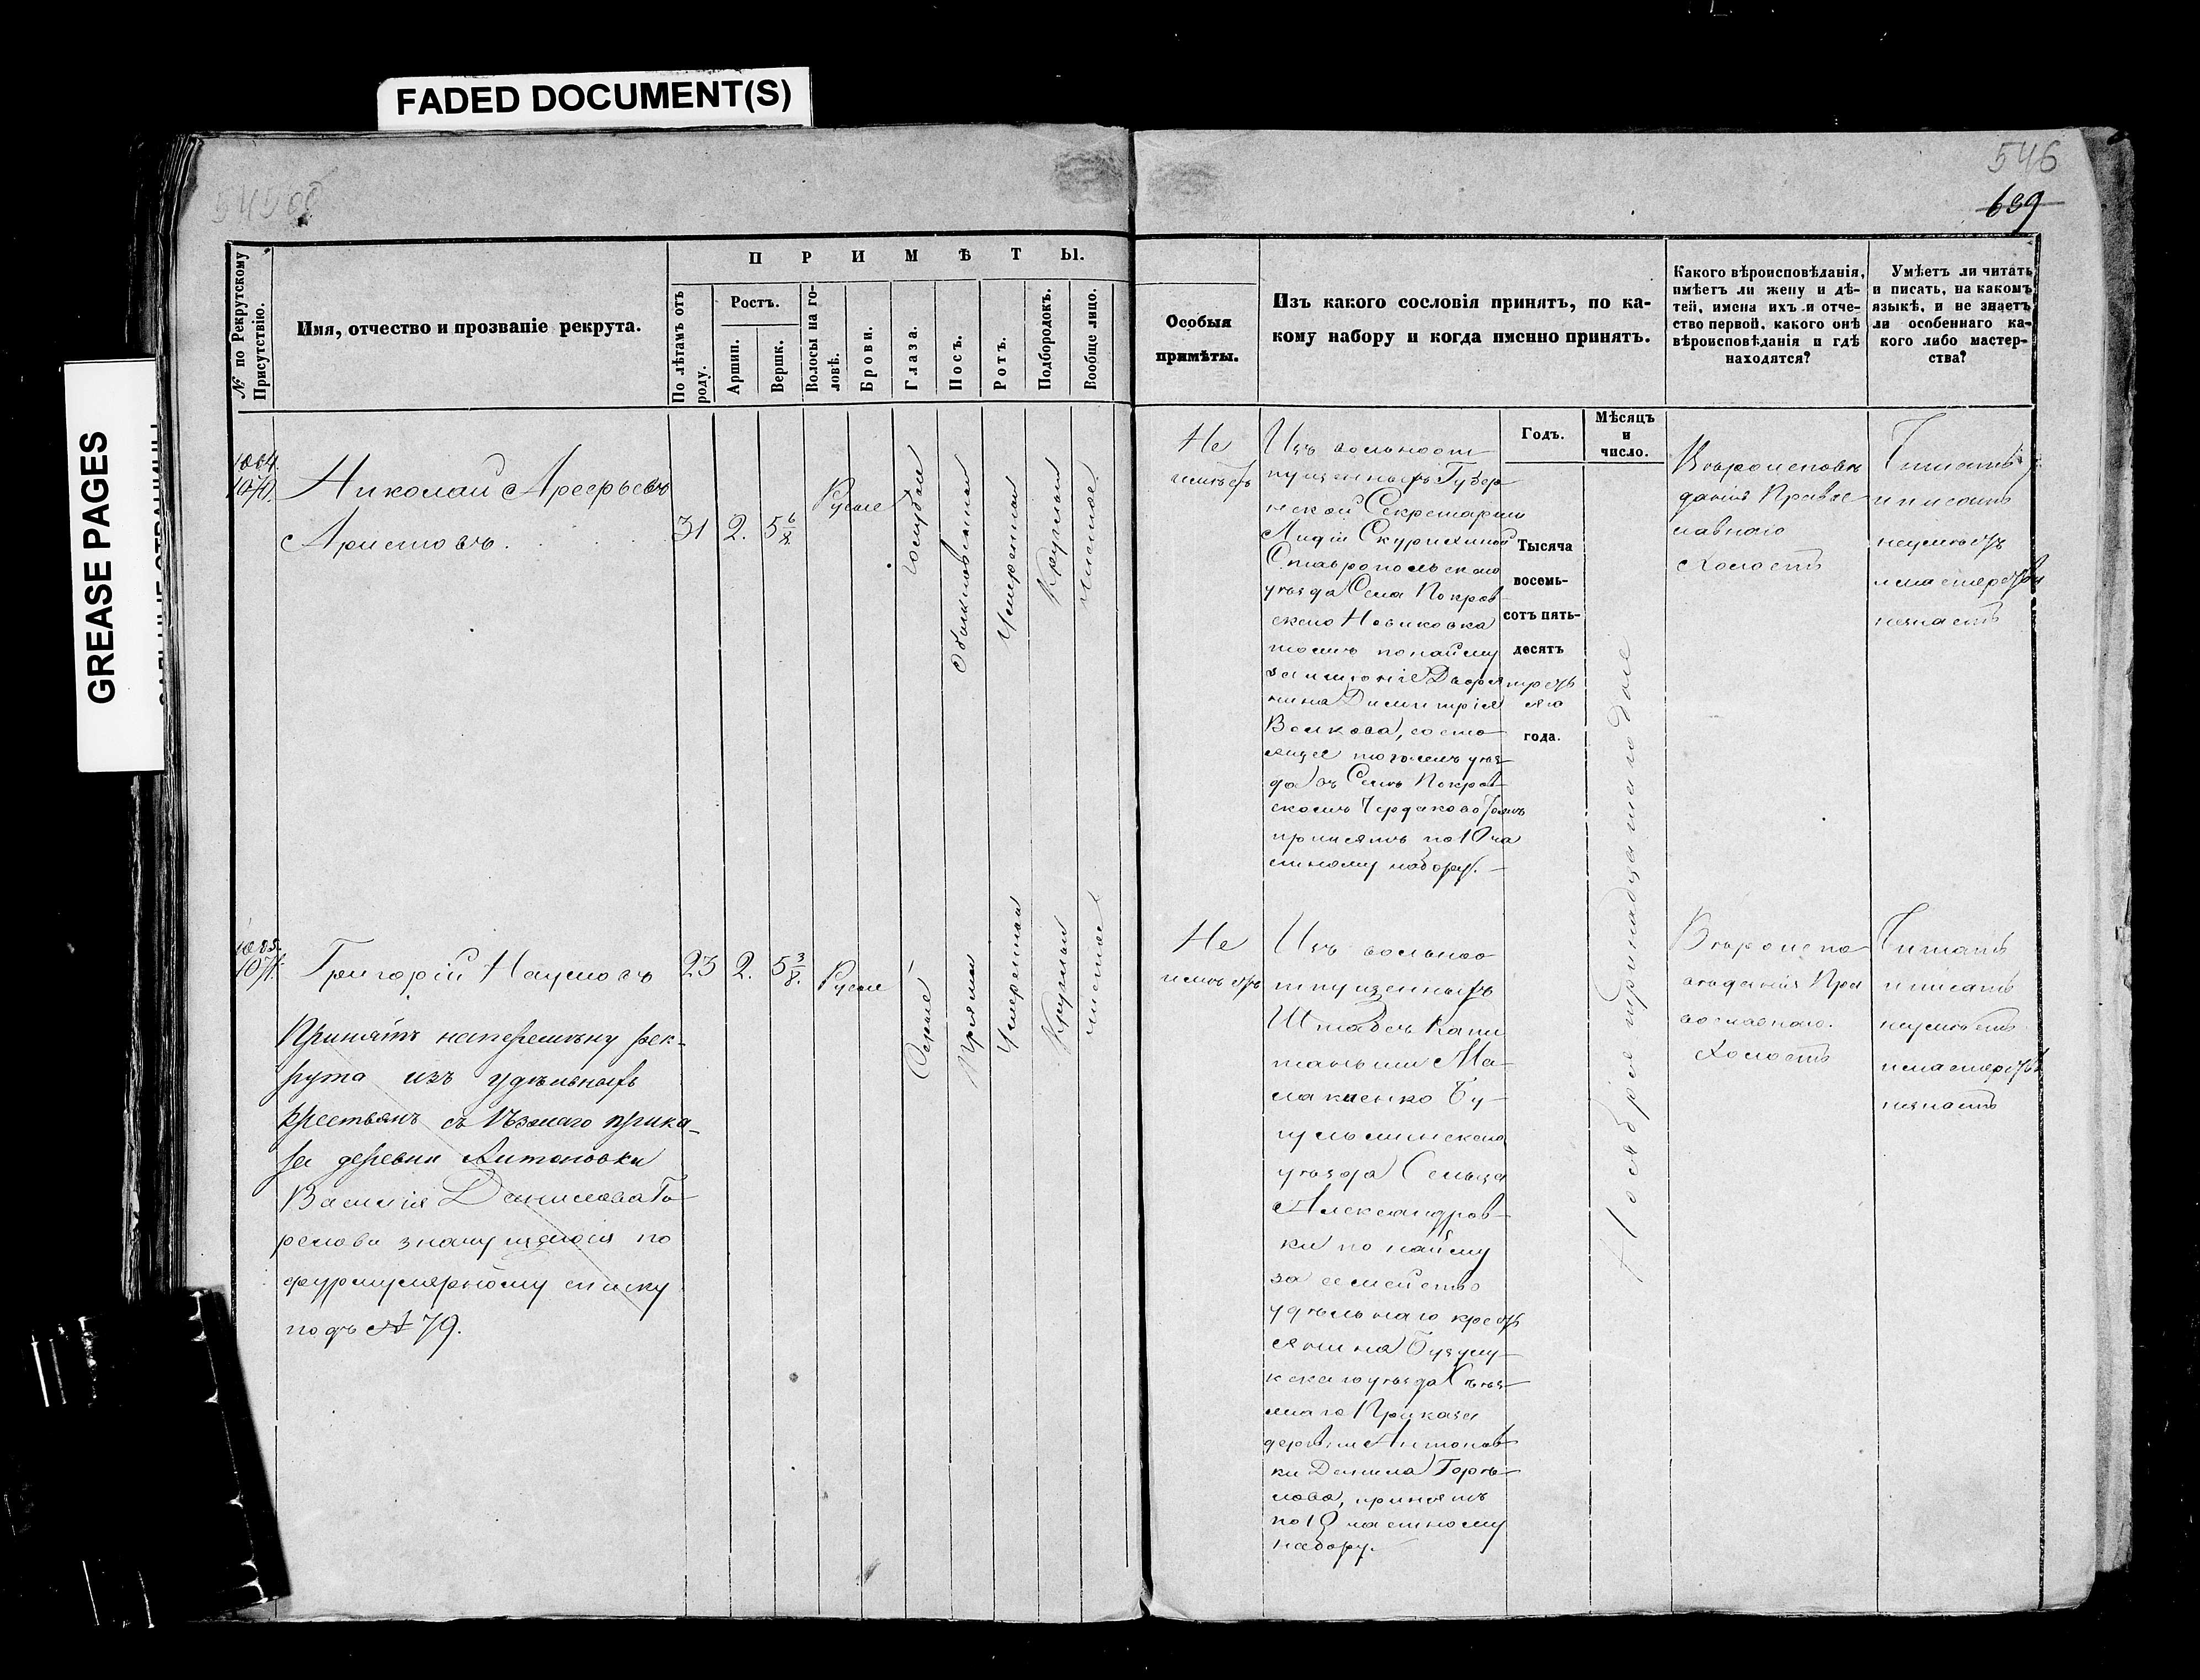 FADED DOCUMENT(S)
GREASE PAGES
546
639
№ по Рекрутскому Присутствію.
Имя, отчество и прозваніе рекрута.
П Р И М Ѣ Т Ы.
По лѣтамъ отъ роду.
Ростъ.
Аршин.
Вершк.
Волосы на головѣ.
Брови.
Глаза.
Носъ.
Ротъ.
Подбородокъ.
Вообще лицо.
Особыя
примѣты.
Изъ какого сословія принятъ, по ка-
кому набору и когда именно принятъ.
Какого вѣроисповѣданія,
имѣетъ ли жену и дѣ-
тей, имена ихъ и отче-
ство первой, какого онѣ
вѣроисповѣданія и гдѣ
находятся?
Умѣетъ ли читать
и писать, на какомъ
языкѣ, и не знаетъ
ли особеннаго ка-
кого либо мастер-
ства?
Годъ.
Мѣсяцъ
и
число.
1070.
Николай Арсерьевъ
Аристовъ.
31
2.
5 6/8.
Русые
Голубые
Обыкновенный
Умеренный
Круглый
Чистое
Не
имѣетъ
Изъ вольноот
пущенныхъ Губер
нской Секретарши
Лидіи Скурихиной
Ставропольскаго
уѣзда Села Покров
скаго Новиковка
тожъ по найму
за имѣніе Дворя
нина Димитрія
Волкова, состо
ящее по томъ уѣз
да въ Селѣ Покров
скомъ Чердаково тожъ
принятъ по 10 ча
стному набору.
Тысяча
восемь-
сотъ пять-
десятъ
третья
го
года.
Ноября тринадцатаго дня
Вѣроисповѣ
данія Правос
лавнаго
Холостъ
Читать
и писать
неумѣетъ
и мастерства
незнаетъ
1071.
Григорій Наумовъ
23
2.
5 3/8.
Русые
Серые
Прямый
Умеренный
Круглый
чистое
Принятъ на перемѣну рек-
рута изъ удѣльныхъ
крестьянъ Съѣзжаго прика-
за деревни Антоновки
Василія Данилова Го-
релова значущагося по
формулярному списку
подъ № 79.
Не
имѣетъ
Изъ вольноо
тпущенныхъ
Штабсъ Капи
танши Ма-
лакиенко Бу-
гульминскаго
уѣзда Сельца
Александров-
ки по найму
за семейство
удѣльнаго крест
янина Бузулу-
кскаго уѣзда Съѣз-
жаго Приказа
деревни Антонов-
ки Данила Горѣ-
лова, принятъ
по 10 частному
набору.
Вѣроиспо
вѣданія Пра
вославнаго.
Холостъ
Читать
и писать
неумѣетъ
и мастерства
незнаетъ